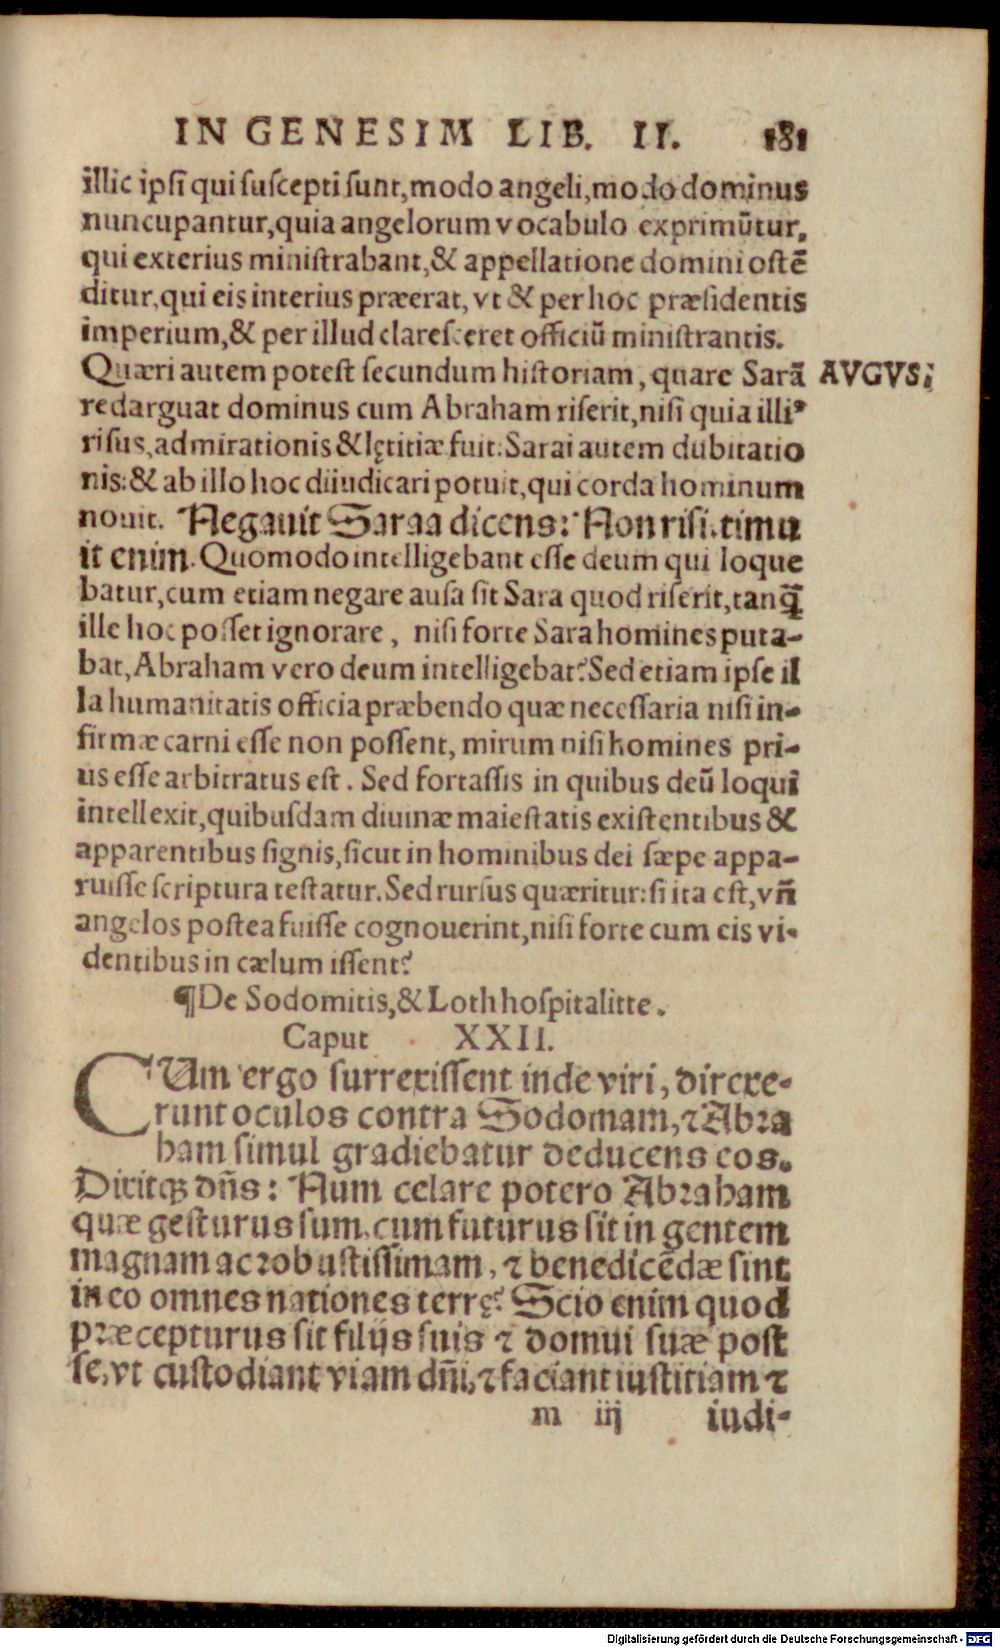 IN GENESIM LIB. II. 181
illic ipsi qui suscepti sunt, modo angeli, modo dominus
nuncupantur, quia angelorum vocabulo exprimūtur,
qui exterius ministrabant, & appellatione domini ostē
ditur, qui eis interius præerat, vt & per hoc præsidentis
imperium, & per illud claresceret officiū ministrantis.
Quæri autem potest secundum historiam, quare Sarā AVGVS:
redarguat dominus cum Abraham riserit, nisi quia illiꝰ
risus, admirationis & lętitiæ fuit: Sarai autem dubitatio
nis: & ab illo hoc diiudicari potuit, qui corda hominum
nouit. Negauit Saraa dicens: Non risi. timu
it enim. Quomodo intelligebant esse deum qui loque
batur, cum etiam negare ausa sit Sara quod riserit, tanq̄
ille hoc posset ignorare, nisi forte Sara homines puta-
bat, Abraham vero deum intelligebat? Sed etiam ipse il
la humanitatis officia præbendo quæ necessaria nisi in-
firmæ carni esse non possent, mirum nisi homines pri-
us esse arbitratus est. Sed fortassis in quibus deū loqui
intellexit, quibusdam diuinæ maiestatis existentibus &
apparentibus signis, sicut in hominibus dei sæpe appa-
ruisse scriptura testatur. Sed rursus quæritur: si ita est, vñ
angelos postea fuisse cognouerint, nisi forte cum eis vi-
dentibus in cælum issent?
¶De Sodomitis, & Loth hospitalitte.
Caput XXII.
CUm ergo surrexissent inde viri, direxe-
runt oculos contra Sodomam, ⁊ Abra
ham simul gradiebatur deducens eos.
Dixitqꝫ dn̄s: Num celare potero Abraham
quæ gesturus sum, cum futurus sit in gentem
magnam ac robustissimam, ⁊ benedicēdæ sint
in eo omnes nationes terrę? Scio enim quod
præcepturus sit filijs suis ⁊ domui suæ post
se, vt custodiant viam dn̄i, ⁊ faciant iustitiam ⁊
m iij iudi-
Digitalisierung gefördert durch die Deutsche Forschungsgemeinschaft - DFG